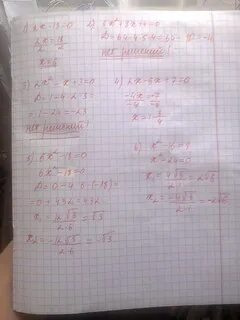 1) 2x-18=0
2x=18/2
x=6
2) 6x²+8x+4=0
D=64-4·5·4=64-80=-16
нет решений!
3) 2x²-x+3=0
D=1-4·2·3=
=1-24=-23
нет решений!
4) 2x-6x+7=0
-4x/-4=-7/-4
x=1 3/4
5) 6x²-18=0
6x²-18=0
D=0-4·6·(-18)=
=0+432=432
x₁=4√3/2·6=√3
x₂=-4√3/2·6=-√3
6) x²-16=9
x²-24=0
x₁=4√6/2·1=2√6
x₂=-4√6/2·1=-2√6